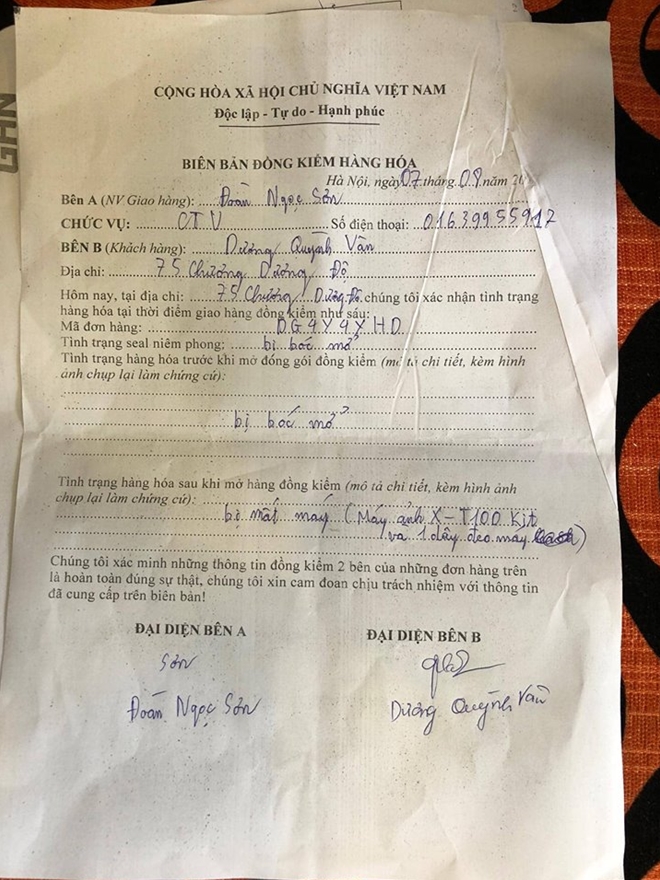 CỘNG HÒA XÃ HỘI CHỦ NGHĨA VIỆT NAM
Độc lập - Tự do - Hạnh phúc
BIÊN BẢN ĐỒNG KIỂM HÀNG HÓA
Hà Nội, ngày 07 tháng 08 năm 20
Bên A (NV Giao hàng): Đoàn Ngọc Sơn
CHỨC VỤ: CTV Số điện thoại: 01639955912
BÊN B (Khách hàng): Dương Quỳnh Vân
Địa chỉ: 75 Chương Dương Độ
Hôm nay, tại địa chỉ: 75 Chương Dương Độ chúng tôi xác nhận tình trạng
hàng hóa tại thời điểm giao hàng đồng kiểm như sau:
Mã đơn hàng: DG9Y9YHD
Tình trạng seal niêm phong: bị bóc mở
Tình trạng hàng hóa trước khi mở đóng gói đồng kiểm (mô tả chi tiết, kèm hình
ảnh chụp lại làm chứng cứ):
bị bóc mở
Tình trạng hàng hóa sau khi mở hàng đồng kiểm (mô tả chi tiết, kèm hình ảnh
chụp lại làm chứng cứ):
bị mất máy (Máy ảnh X-T100 Kit
và 1 dây đeo máy )
Chúng tôi xác minh những thông tin đồng kiểm 2 bên của những đơn hàng trên
là hoàn toàn đúng sự thật, chúng tôi xin cam đoan chịu trách nhiệm với thông tin
đã cung cấp trên biên bản!
ĐẠI DIỆN BÊN A ĐẠI DIỆN BÊN B
Sơn
Đoàn Ngọc Sơn Dương Quỳnh Vân